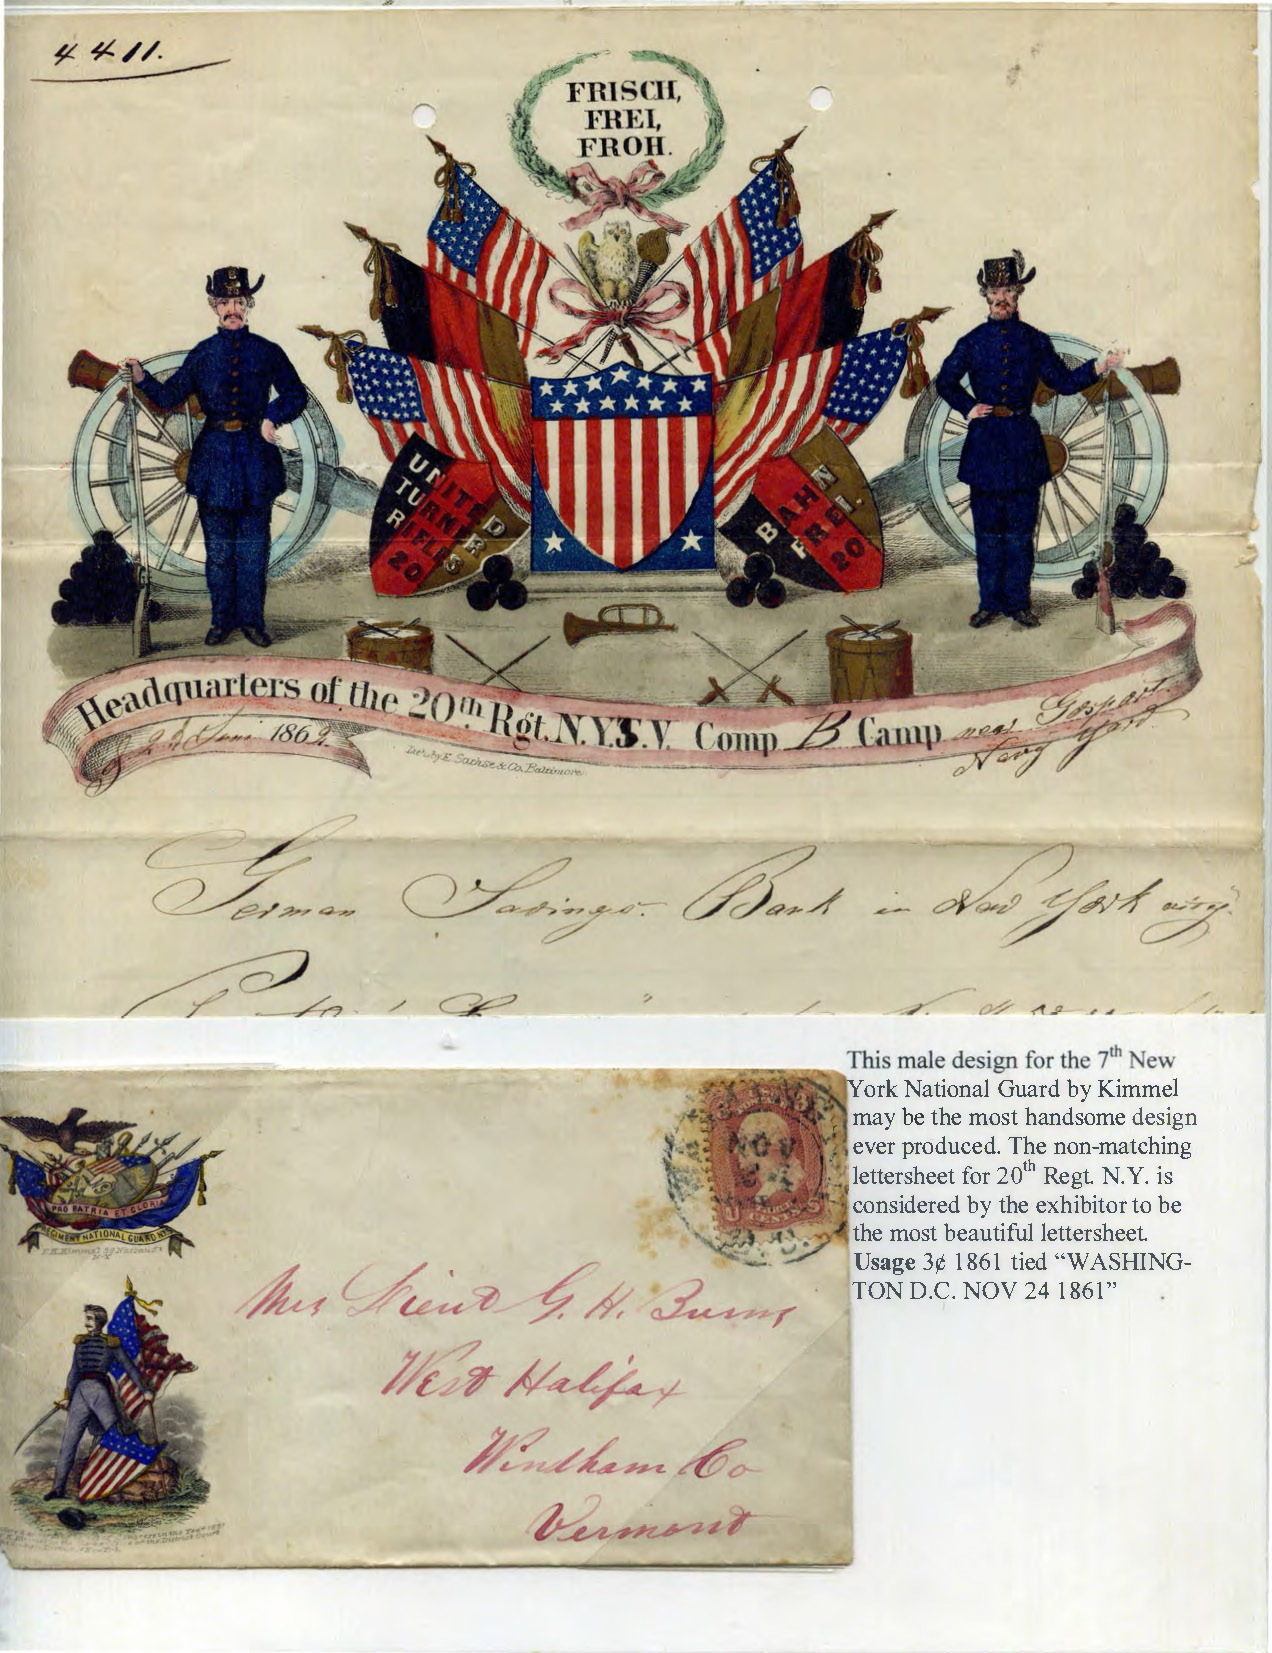 4411.
FRISCH,
FREI,
FROH.
UNITED
TURNER
RIFLES
20
BAHN
FREI.
20
Headquarters of the 20th Rgt. N.Y.S.V. Comp B Camp near Gosport
Navy Yard.
2d Juni 1862.
Lith. by E. Sachse & Co. Baltimore
German Savings Bank in New York
PRO PATRIA ET GLORIA
REGIMENT NATIONAL GUARD N.Y.
NOV
U S
CENTS
D.C.
Mrs Lieut G. H. Burns
West Halifax
Windham Co
Vermont
This male design for the 7th New
York National Guard by Kimmel
may be the most handsome design
ever produced. The non-matching
lettersheet for 20th Regt. N.Y. is
considered by the exhibitor to be
the most beautiful lettersheet.
Usage 3¢ 1861 tied “WASHING-
TON D.C. NOV 24 1861”